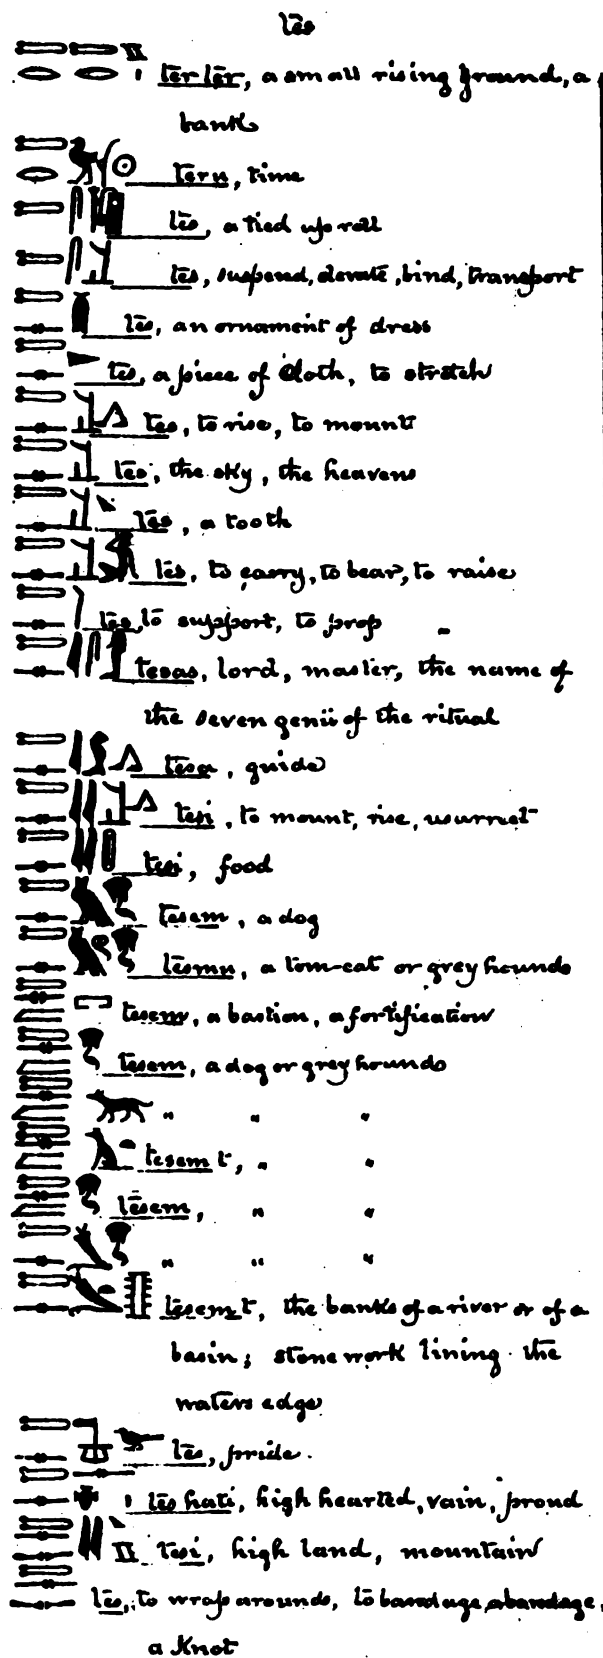 tes
ter ter, a small rising ground, a
bank
teru, time
tes, a tied up roll
tes, suspend, elevate, bind, transport
tes, an ornament of dress
tes, a piece of cloth, to stretch
tes, to rise, to mount
tes, the sky, the heavens
tes, a tooth
tes, to carry, to bear, to raise
tes, to support, to prop
tesas, lord, master, the name of
the seven genii of the ritual
tesa, guide
tesi, to mount, rise,
tesi, food
tesem, a dog
tesmu, a tom-cat or grey hounds
tesem, a bastion, a fortification
tesem, a dog or grey hounds
" " "
tesem t, " "
tesem, " "
" " "
tesem t, the banks of a river or of a
basin; stone work lining the
waters edge
tes, pride.
tes hati, high hearted, vain, proud
tesi, high land, mountain
tes, to wrap around, to bandage, a bandage,
a Knot